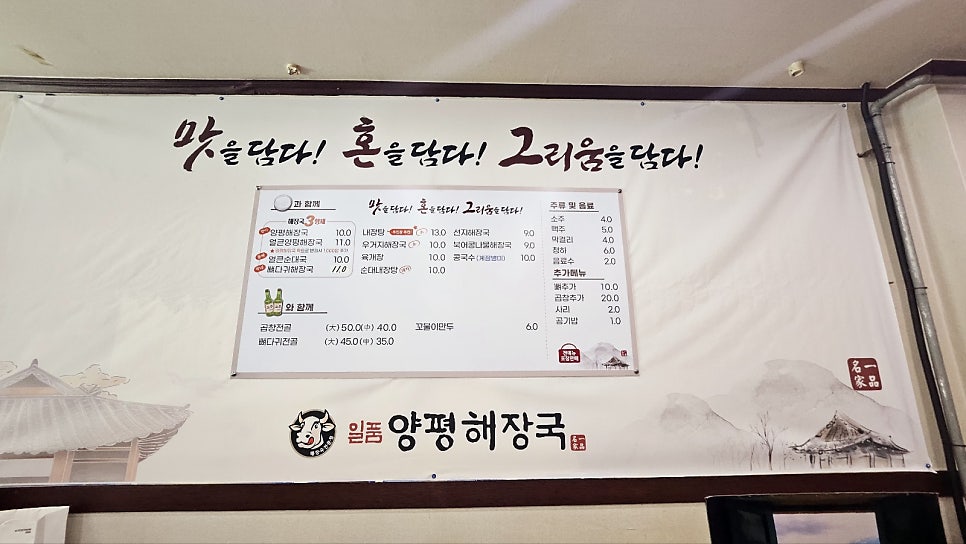 맛을 담다! 혼을 담다! 그리움을 담다!
과 함께
해장국 3형제
양평해장국 10.0
얼큰양평해장국 11.0
얼큰순대국 10.0
뼈다귀해장국 11.0
맛을 담다! 혼을 담다! 그리움을 담다!
내장탕 13.0
우거지해장국 10.0
육개장 10.0
순대내장탕 10.0
선지해장국 9.0
북어콩나물해장국 9.0
콩국수 (계절별미) 10.0
와 함께
곱창전골 (大) 50.0 (中) 40.0
뼈다귀전골 (大) 45.0 (中) 35.0
꼬물이만두 6.0
주류 및 음료
소주 4.0
맥주 5.0
막걸리 4.0
청하 6.0
음료수 2.0
추가메뉴
뼈추가 10.0
곱창추가 20.0
사리 2.0
공기밥 1.0
전메뉴
포장판매
일품 양평해장국
一品
名家